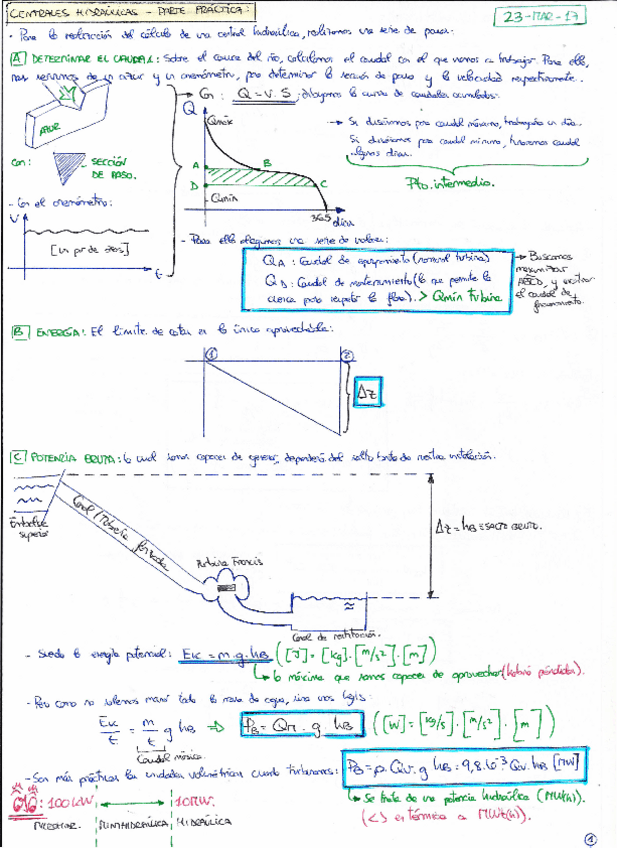 CENTRALES HIDRÁULICAS - PARTE PRÁCTICA:
23-MAR-17
- Para la realización del cálculo de una central hidráulica, realizamos una serie de pasos:
A DETERMINAR EL CAUDAL: Sobre el cauce del río, calculamos el caudal con el que vamos a trabajar. Para ello,
nos servimos de un azur y un anemómetro, para determinar la sección de paso y la velocidad respectivamente.
AZUR
Con:
SECCIÓN
DE PASO.
- Con el anemómetro:
V
[Un par de días]
t
Con: Q = V·S; dibujamos la curva de caudales acumulados:
Q
Qmáx
A
B
D
C
Qmin
365
días
→ Si diseñamos para caudal máximo, trabajaría un día.
Si diseñamos para caudal mínimo, tenemos caudal
algunos días.
Pto. intermedio.
- Para ello elegimos una serie de valores:
QA: Caudal de equipamiento (nominal turbina)
QD: Caudal de mantenimiento (lo que permite la
cuenca para respetar la flora). > Qmín turbina
→ Buscamos
maximizar
ABCD, y
el caudal de
funcionamiento.
B ENERGÍA: El límite de cotas es la única aprovechable:
1
2
Δz
C POTENCIA BRUTA: la cual somos capaces de generar, dependerá del salto bruto de nuestra instalación.
Embalse
superior
Canal / Tubería forzada
Turbina Francis
Canal de restitución.
Δz = hB ≡ SALTO BRUTO.
- Siendo la energía potencial: Ek = m·g·hB ([J] = [kg]·[m/s²]·[m])
↳ lo máxima que somos capaces de aprovechar (habrá pérdidas).
- Pero como no sabemos mano toda la masa de agua, sino unos kg/s:
Ek/t = m/t g hB ⇒ PB = Qm · g hB ([W] = [kg/s]·[m/s²]·[m])
Caudal másico.
- Son más prácticas las unidades volumétricas cuando turbinamos: PB = ρ·Qv·g hB = 9,8·10⁻³ Qv·hB [MW]
↳ Se trata de una potencia hidráulica (MW(h)).
(<> en térmica a MWt(h)).
OJO: 100 kW. ↔ 10MW.
MINIHIDRÁULICA HIDRÁULICA
1